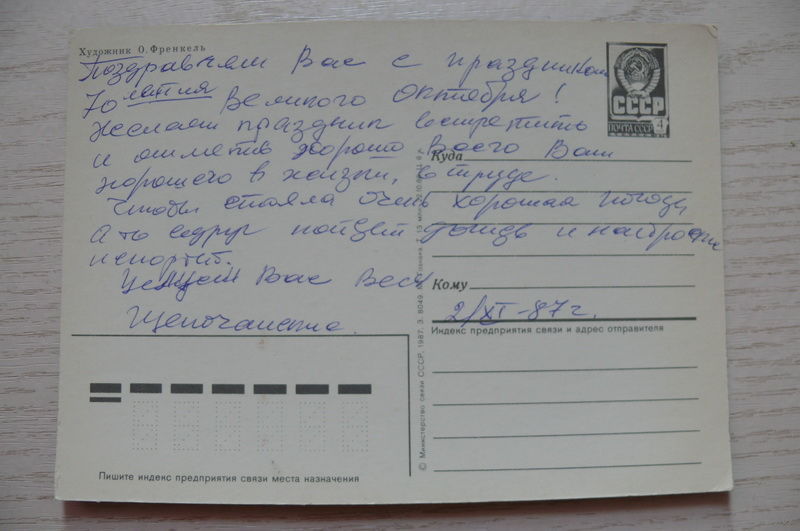 Художник О. Френкель
Поздравляем Вас с праздником
70 летия Великого Октября!
Желаем праздник встретить
и отметив хорошо всего Вам
хорошего в жизни, в труде.
Чтобы стояла очень хорошая погода,
А то вдруг пойдет дождь и
испортит.
Целуем Вас Всех
2/XI-87 г.
СССР
ПОЧТА СССР 4
Куда
Кому
Индекс предприятия связи и адрес отправителя
Пишите индекс предприятия связи места назначения
© Министерство связи СССР, 1987. З. 8049.